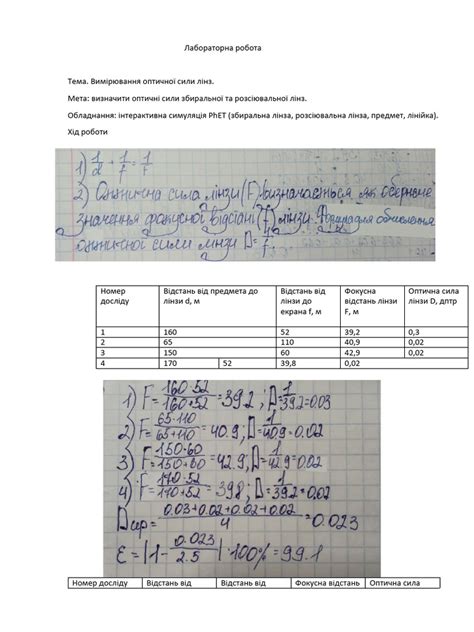 Лабораторна робота
Тема. Вимірювання оптичної сили лінз.
Мета: визначити оптичні сили збиральної та розсіювальної лінз.
Обладнання: інтерактивна симуляція PhET (збиральна лінза, розсіювальна лінза, предмет, лінійка).
Хід роботи
1) 1/d + 1/f = 1/F
2) Оптична сила лінзи (F) визначається як обернене
значення фокусної відстані (f) лінзи. Формула для обчислення
оптичної сили лінзи D = 1/f
Номер досліду Відстань від предмета до лінзи d, м Відстань від лінзи до екрана f, м Фокусна відстань лінзи F, м Оптична сила лінзи D, дптр
1 160 52 39,2 0,3
2 65 110 40,9 0,02
3 150 60 42,9 0,02
4 170 52 39,8 0,02
1) F = 160·52/160+52 = 39.2; D = 1/39.2 = 0.03
2) F = 65·110/65+110 = 40.9; D = 1/40.9 = 0.02
3) F = 150·60/150+60 = 42.9; D = 1/42.9 = 0.02
4) F = 170·52/170+52 = 39.8; D = 1/39.2 = 0.02
Dсер = 0.03+0.02+0.02+0.02/4 = 0.023
ε = |1 - 0.023/2.5| · 100% = 99.1
Номер досліду Відстань від Відстань від Фокусна відстань Оптична сила